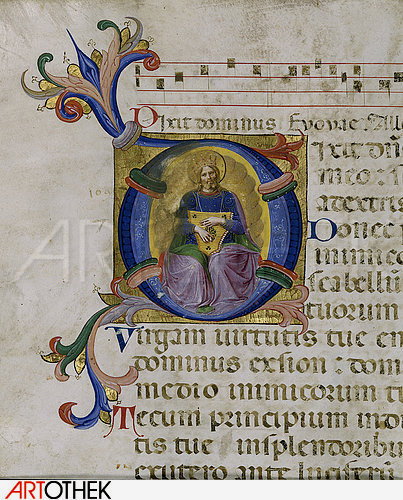 Dixit dominus. Evovae. All
ixit dn̄s
meo: s
dextris
Donec
inimico
scabellū
tuorum
Virgam virtutis tue em
dominus ex sion: dom
medio inimicorum t
Tecum principium in di
tis tue insplendoribu
ex utero ante luciferū
ART
ARTOTHEK